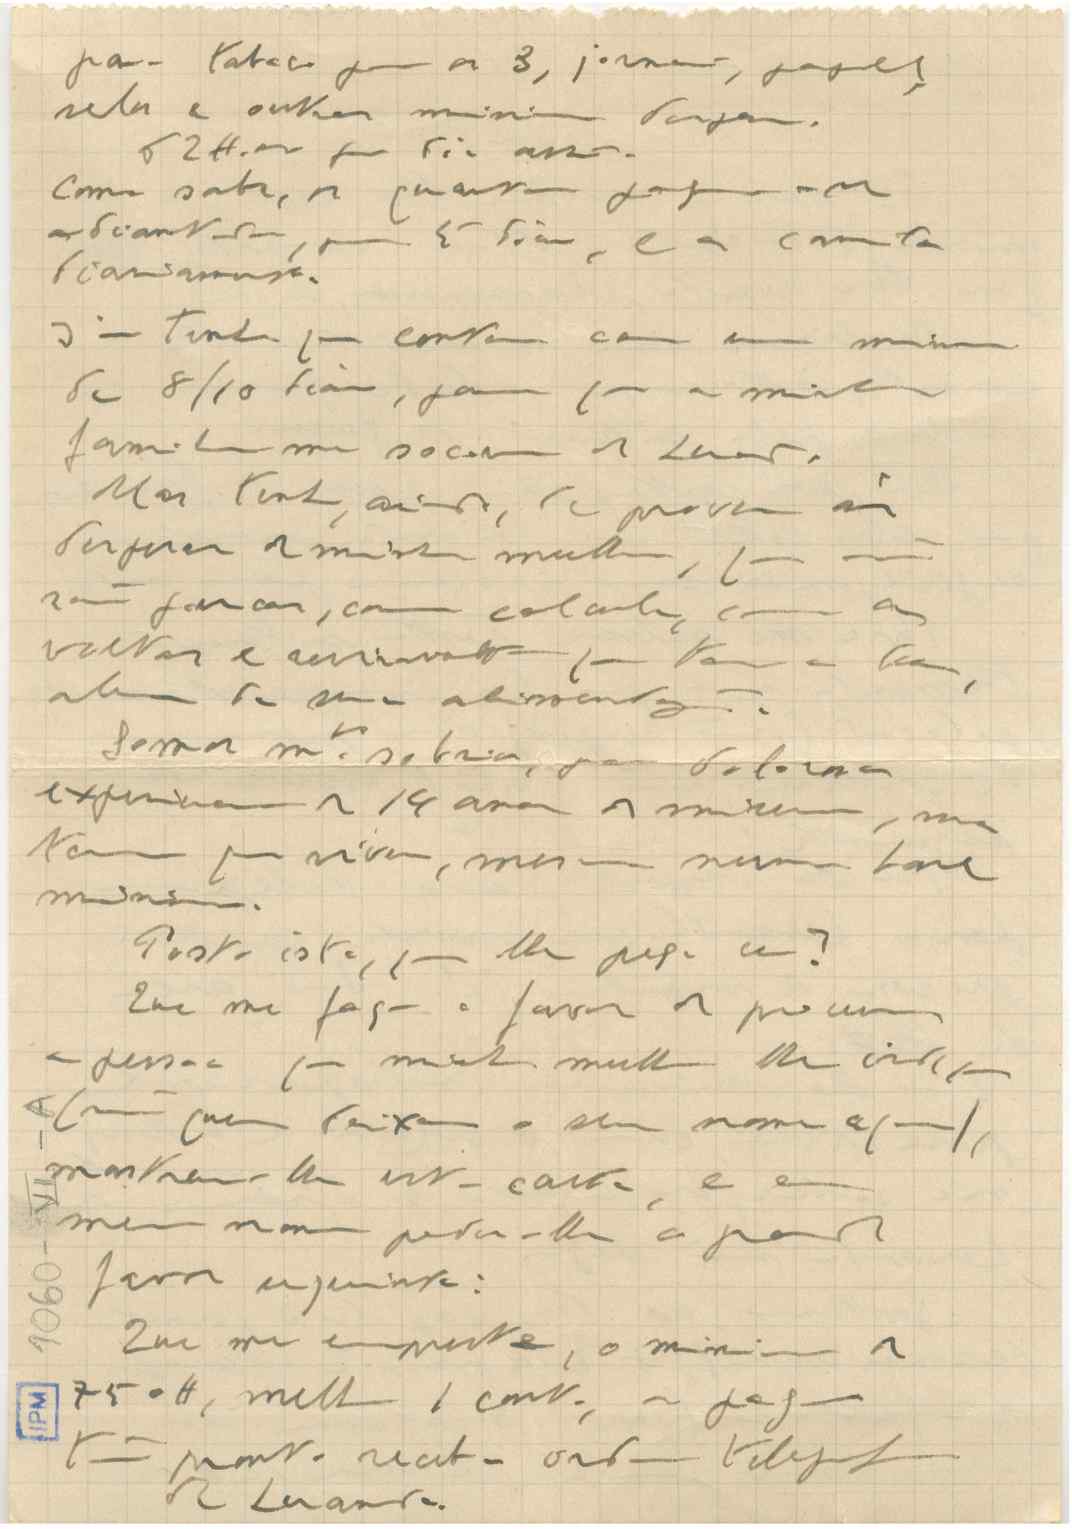 para tabaco para os 3, jornais, papel,
selos e outras minimas despesas.
52$00 por dia assim.
Como sabe, os quartos pagam-se
adiantados, por 5 dias, e a comida
diariamente.
Tenho que contar com um minimo
de 8/10 dias, para que a minha
familia me socorra de Luanda.
Mas tenho, ainda, de prover às
despesas de minha mulher, que não
são poucas, como calcula, com as
voltas e reviravoltas que tem a dar,
alem da sua alimentação.
Somos mto. sobrios, por dolorosa
experiencia de 14 anos de miseria, mas
temos que viver, mesmo nessa base
minima.
Posto isto, que lhe peço eu?
Que me faça o favor de procurar
a pessoa que minha mulher lhe indique
(não quero deixar o seu nome aqui),
mostrar-lhe esta carta, e em
meu nome pedir-lhe o grande
favor seguinte:
Que me empreste, o minimo de
750$, melhor 1 conto, a pagar
tão pronto receba ordem telegrafica
de Luanda.
9060-VI-A
IPM